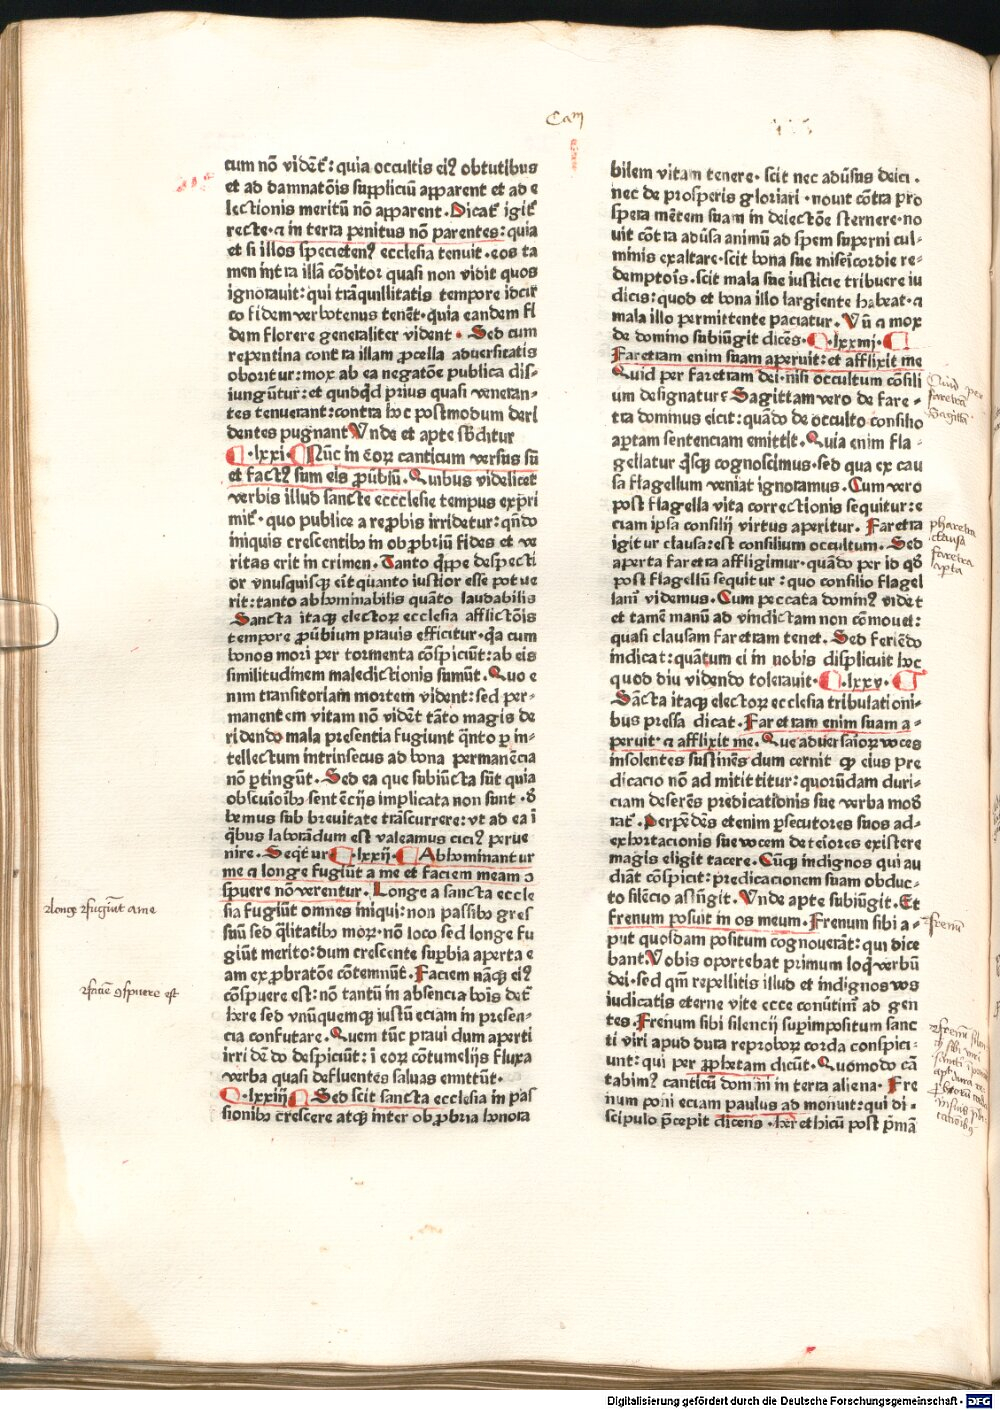 Cam
cum nō vidēt᷑: quia occultis eiꝰ obtutibus
et ad damnatōis suppliciū apparent et ad e
lectionis meritū nō apparent. Dicat᷑ igit᷑
recte. ⁊ in terra penitus nō parentes: quia
et si illos specietenꝰ ecclesia tenuit. eos ta
men intra illā cōditor quasi non vidit quos
ignorauit: qui trāquillitatis tempore idcir
co fidem verbotenus tenēt. quia eandem fi
dem florere generaliter vident. Sed cum
repentina contra illam ꝓcella aduersitatis
oboritur: mox ab ea negatōe publica dis⸗
iungūtur: et quidqd prius quasi veneran⸗
tes tenuerant: contra hoc postmodum deri
dentes pugnant Vnde et apte sbditur
.lxxi. Nūc in eorꝝ canticum versus sū
et factꝰ sum eis ꝓūbiū. Quibus videlicet
verbis illud sancte eccclesie tempus expri
mit᷑. quo publice a reꝓbis irridetur: qn̄do
iniquis crescentibꝰ in obꝓbriū fides et ve
ritas erit in crimen. Tanto qꝑpe despecti
or vnusquisqꝫ eīt quanto iustior esse potue
rit: tanto abhominabilis quāto laudabilis
Sancta itaqꝫ electorꝝ ecclesia afflictōis
tempore ꝓūbium prauis efficitur. qa cum
bonos mori per tormenta cōspiciūt: ab eis
similitudinem maledictionis sumūt. Quo e
nim transitoriam mortem vident: sed per⸗
manentem vitam nō vidēt tāto magis de
ridendo mala presentia fugiunt qnto ꝑ in⸗
tellectum intrinsecus ad bona permanēcia
nō ꝑtingūt. Sed ea que subiūcta sūt quia
obscuioibꝰ sentēcijs implicata non sunt. d
bemus sub breuitate trāscurrere: vt ad ea ī
qbus laborādum est valeamus cicī perue
nire. Seqtur .lxxij. Abhominantur
me ⁊ longe fugiūt a me et faciem meam ꝯ
spuere nō verentur. Longe a sancta eccle
sia fugiūt omnes iniqui: non passibꝰ gres
suū sed qlitatibꝰ morꝝ. nō loco sed longe fu
giūt merito: dum crescente supbia aperta e
am exꝓbratōe cōtemnūt. Faciem nāqꝫ eiꝰ
cōspuere est: nō tantū in absencia bōis det᷑
here sed vnūquemqꝫ iustū eciam in presen⸗
cia confutare. Quem tūc praui dum aperti
irridēdo despiciūt: ī eorꝝ cōtumelijs fluxa
verba quasi defluentes saluas emittūt.
.lxxiij Sed scit sancta ecclesia in pas
sionibꝰ crescere atqꝫ inter obꝓbria honora
bilem vitam tenere. scit nec aduersus deici.
nec de prosperis gloriari. nouit cōtra pro
spera mētem suam in deiectōe sternere. no
uit cōtra adūsa animū ad spem superni cul⸗
minis exaltare. scit bona sue misericordie re⸗
demptoīs. scit mala sue iusticie tribuere iu
dicis: quod et bona illo largiente habeat. ⁊
mala illo permittente paciatur. Vn̄ ⁊ mox
de domino subiūgit dicēs. .lxxiiij.
Faretram enim suam aperuit: et afflixit me
Quid per faretram dei. nisi occultum cōsili
um designatur? Sagittam vero de fare⸗
tra dominus eicit: quādo de occulto consilio
apertam sentenciam emittit. Quia enim fla⸗
gellatur qsqꝫ cognoscimus. sed qua ex cau
sa flagellum veniat ignoramus. Cum vero
post flagella vita correctionis sequitur: e
ciam ipsa consilij virtus aperitur. Faretra
igitur clausa: est consilium occultum. Sed
aperta faretra affligimur. quādo per id qd
post flagellū sequitur: quo consilio flagel
lamꝰ videmus. Cum peccata dominꝰ videt
et tamē manū ad vindictam non cōmouet:
quasi clausam faretram tenet. Sed feriēdo
indicat: quātum ei in nobis displicuit hoc
quod diu videndo tolerauit. .lxxv.
Sācta itaqꝫ electorꝝ ecclesia tribulationi⸗
bus pressa dicat. Faretram enim suam a⸗
peruit. ⁊ afflixit me. Que aduersaiorꝝ voces
insolentes sustinēs dum cernit qꝫ eius pre
dicacio nō admittitur: quorūdam duri⸗
ciam deserēs predicationis sue verba mod
rat᷑. Perpēdēs etenim ꝑsecutores suos ad⸗
exhortacionis sue vocem deteiores existere
magis eligit tacere. Cūqꝫ indignos qui au
diāt cōspicit: predicacionem suam obduc⸗
to silēcio astīgit. Vnde apte subiūgit. Et
frenum posuit in os meum. Frenum sibi a⸗
put quosdam positum cognouerāt: qui dice
bant. Vobis oportebat primum loqi verbū
dei. sed qm̄ repellitis illud et indignos vos
iudicatis eterne vite ecce conūtimꝰ ad gen
tes. Frenum sibi silencij supimpositum sanc
ti viri apud dura reproborꝝ corda conspici⸗
unt: qui per ꝓphetam dicūt. Quomodo cā
tabimꝰ canticū domini in terra aliena. Fre
num poni eciam paulus admonuit: qui di⸗
scipulo p̄cepit dicens. heretihicū post pīmā
longe ⁊fugiūt a me
faciē ꝯspuere est
Quid per
faretrā
Sagitta
pharetra
clausa
faretra
apta
frenū
Digitalisierung gefördert durch die Deutsche Forschungsgemeinschaft - DFG